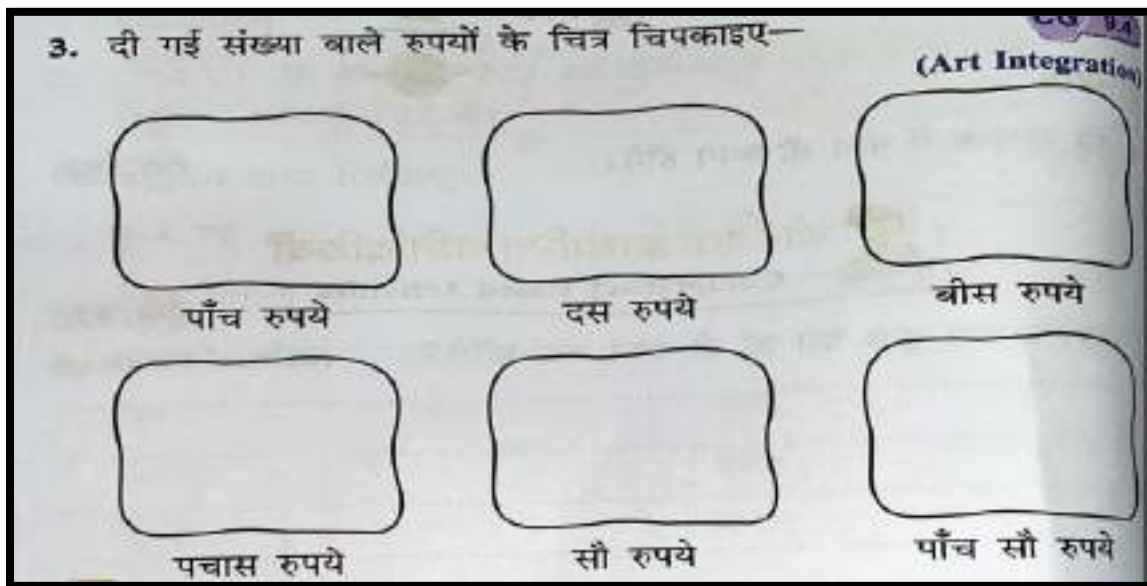 3. दी गई संख्या वाले रुपयों के चित्र चिपकाइए—
(Art Integration)
पाँच रुपये
दस रुपये
बीस रुपये
पचास रुपये
सौ रुपये
पाँच सौ रुपये